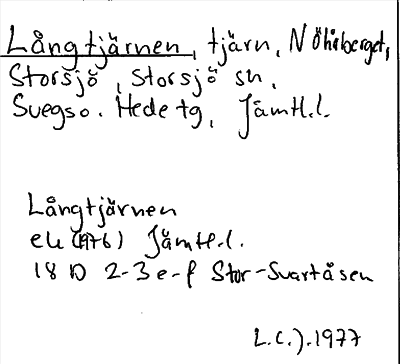 Långtjärnen, tjärn, N Öhnberget,
Storsjö, Storsjö sn,
Svegs o. Hede tg, Jämtl.l.
Långtjärnen
ek (1976) Jämtl.l.
18 D 2-3 e-f Stor-Svartåsen
L.C.J. 1977